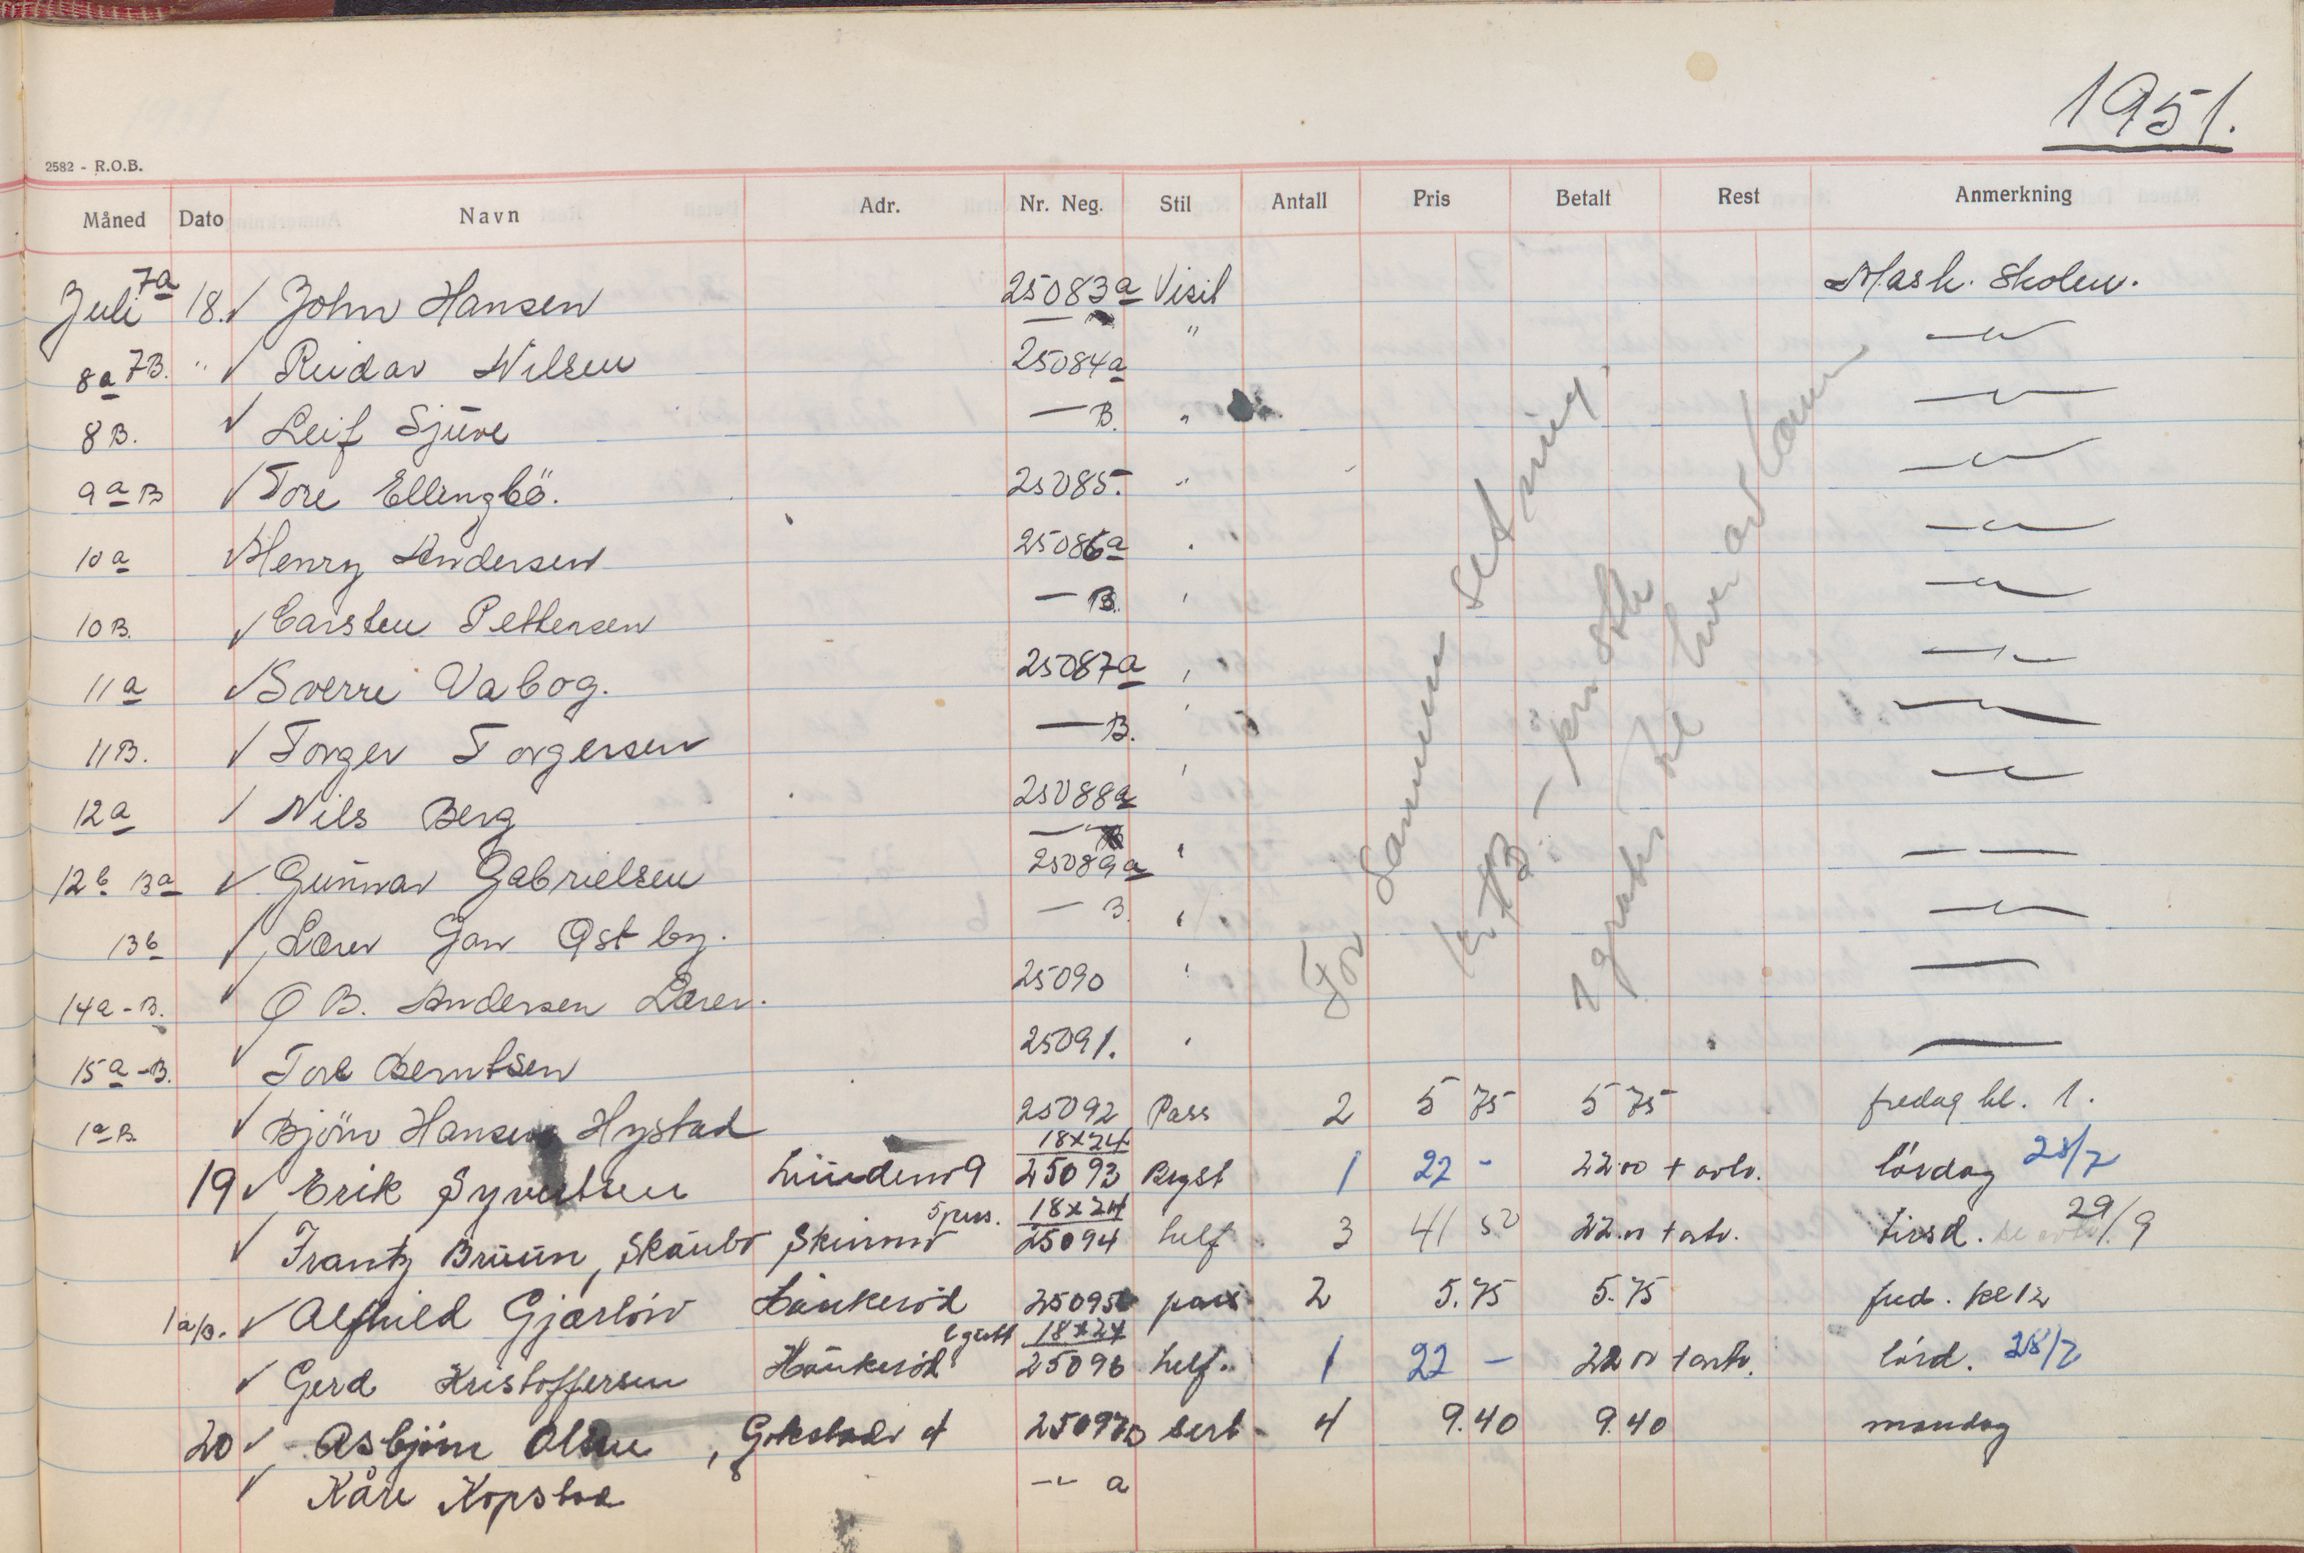 1951.
2582 - R.O.B.
Måned Dato Navn Adr. Nr. Neg. Stil Antall Pris Betalt Rest Anmerkning
Juli 7a 18. ✓ John Hansen 25083a Visit Mask. Skolen.
8a 7B. " ✓ Reidar Nilsen 25084a " — " —
8B. ✓ Leif Sjüve — B. " — " —
9a B ✓ Tore Ellingbö. 25085. " — " —
10a ✓ Henry Andersen 25086a " — " —
10B. ✓ Carsten Pettersen — B. " — " —
11a ✓ Sverre Vabog. 25087a " — " —
11B. ✓ Torger Torgersen — B. " — " —
12a ✓ Nils Berg 25088a " — " —
12b 13a ✓ Gunnar Gabrielsen — B 25089a " — —
13b ✓ Lærer Jan Østby. — B. " — " —
14a - B. ✓ O B. Andersen Lærer. 25090 " —
15a - B. ✓ Tore Berntsen 25091. " —
For Sammen setning.
1a B. ✓ Björn Hansen Hystad 25092 Pass 2 5 75 5 75 fredag kl. 1.
19 ✓ Erik Syvertsen Lindenv 9 18x24 25093 Bryst 1 22 - 22.00 + avb. lördag 28/7
✓ Frantz Bruun, Skaubo 5 pers. 18x24 25094 helf 3 41 50 22.00 + avb. tirsd. 29/9
1a/B. ✓ Alfhild Gjærlöw Haukeröd 25095 pass 2 5.75 5.75 fred. kl 12
✓ Gerd Kristoffersen Haukeröd 18x24 25096 helf. 1 22 - 22 00 + avb. lörd. 28/7
20 ✓ Asbjörn Olsen, Gokstadv 4 25097B sert 4 9.40 9.40 mandag
✓ Kåre Kopstad — " — a